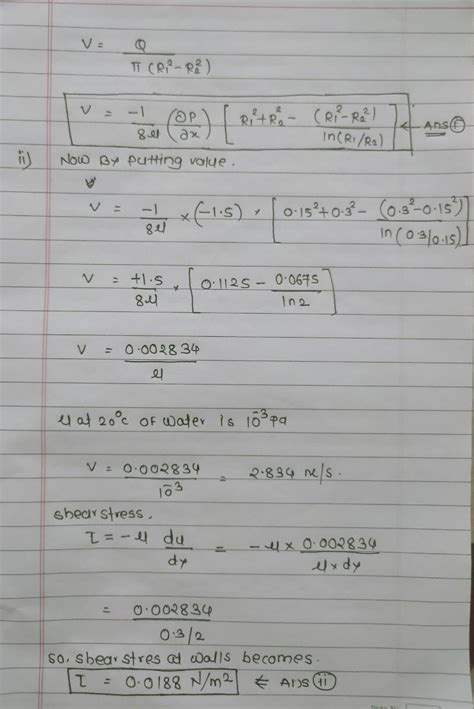 V = Q / π (R₁² - R₂²)
V = -1/8μ (∂P/∂x) [R₁² + R₂² - (R₁² - R₂²)/ln(R₁/R₂)] ← Ans (i)
ii) Now By putting value.
V = -1/8μ × (-1.5) × [0.15² + 0.3² - (0.3² - 0.15²)/ln(0.3/0.15)]
V = +1.5/8μ × [0.1125 - 0.0675/ln2]
V = 0.002834/μ
μ at 20°C of water is 10⁻³ Pa
V = 0.002834/10⁻³ = 2.834 m/s.
shear stress.
τ = -μ du/dy = -μ × 0.002834/μ × dy
= 0.002834/0.3/2
so, shear stres at walls becomes.
τ = 0.0188 N/m² ⇐ Ans (ii)